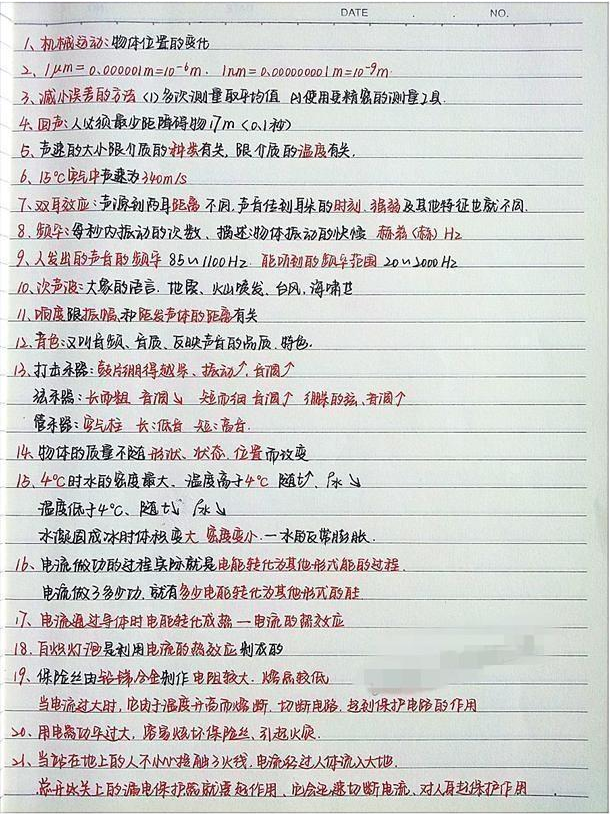 DATE NO.
1、机械运动：物体位置的变化
2、1μm=0.000001m=10⁻⁶m. 1nm=0.000000001m=10⁻⁹m
3、减小误差的方法 (1)多次测量取平均值 (2)使用更精密的测量工具
4、回声：人必须最少距障碍物17m（0.1秒）
5、声速的大小跟介质的种类有关，跟介质的温度有关.
6、15℃空气中声速为340m/s
7、双耳效应：声源到两耳距离不同，声音传到耳朵的时刻、强弱及其他特征也就不同.
8、频率：每秒内振动的次数、描述物体振动的快慢 赫兹（赫）Hz
9、人发出的声音的频率 85~1100Hz. 能听到的频率范围 20~2000Hz
10、次声波：大象的语言、地震、火山喷发、台风、海啸
11、响度跟振幅和距发声体的距离有关
12、音色：又叫音频、音质、反映声音的品质、特色.
13、打击乐器：鼓皮绷得越紧、振动↑、音调↑
弦乐器：长而粗 音调↘ 短而细 音调↑ 绷紧的弦、音调↑
管乐器：空气柱 长：低音 短：高音.
14、物体的质量不随形状、状态、位置而改变
15、4℃时水的密度最大、温度高于4℃ 随t↑、ρ水↘
温度低于4℃、随t↘ ρ水↘
水凝固成冰时体积变大 密度变小.一水的反常膨胀.
16、电流做功的过程实际就是电能转化为其他形式能的过程.
电流做了多少功，就有多少电能转化为其他形式的能
17、电流通过导体时电能转化成热一电流的热效应
18、白炽灯泡是利用电流的热效应制成的
19、保险丝由铅锑合金制作 电阻较大、熔点较低
当电流过大时，它由于温度升高而熔断、切断电路、起到保护电路的作用
20、用电器功率过大，容易烧坏保险丝、引起火灾.
21、当站在地上的人不小心接触了火线，电流经过人体流入大地.
总开关上的漏电保护器就要起作用、它会迅速切断电流、对人身起保护作用